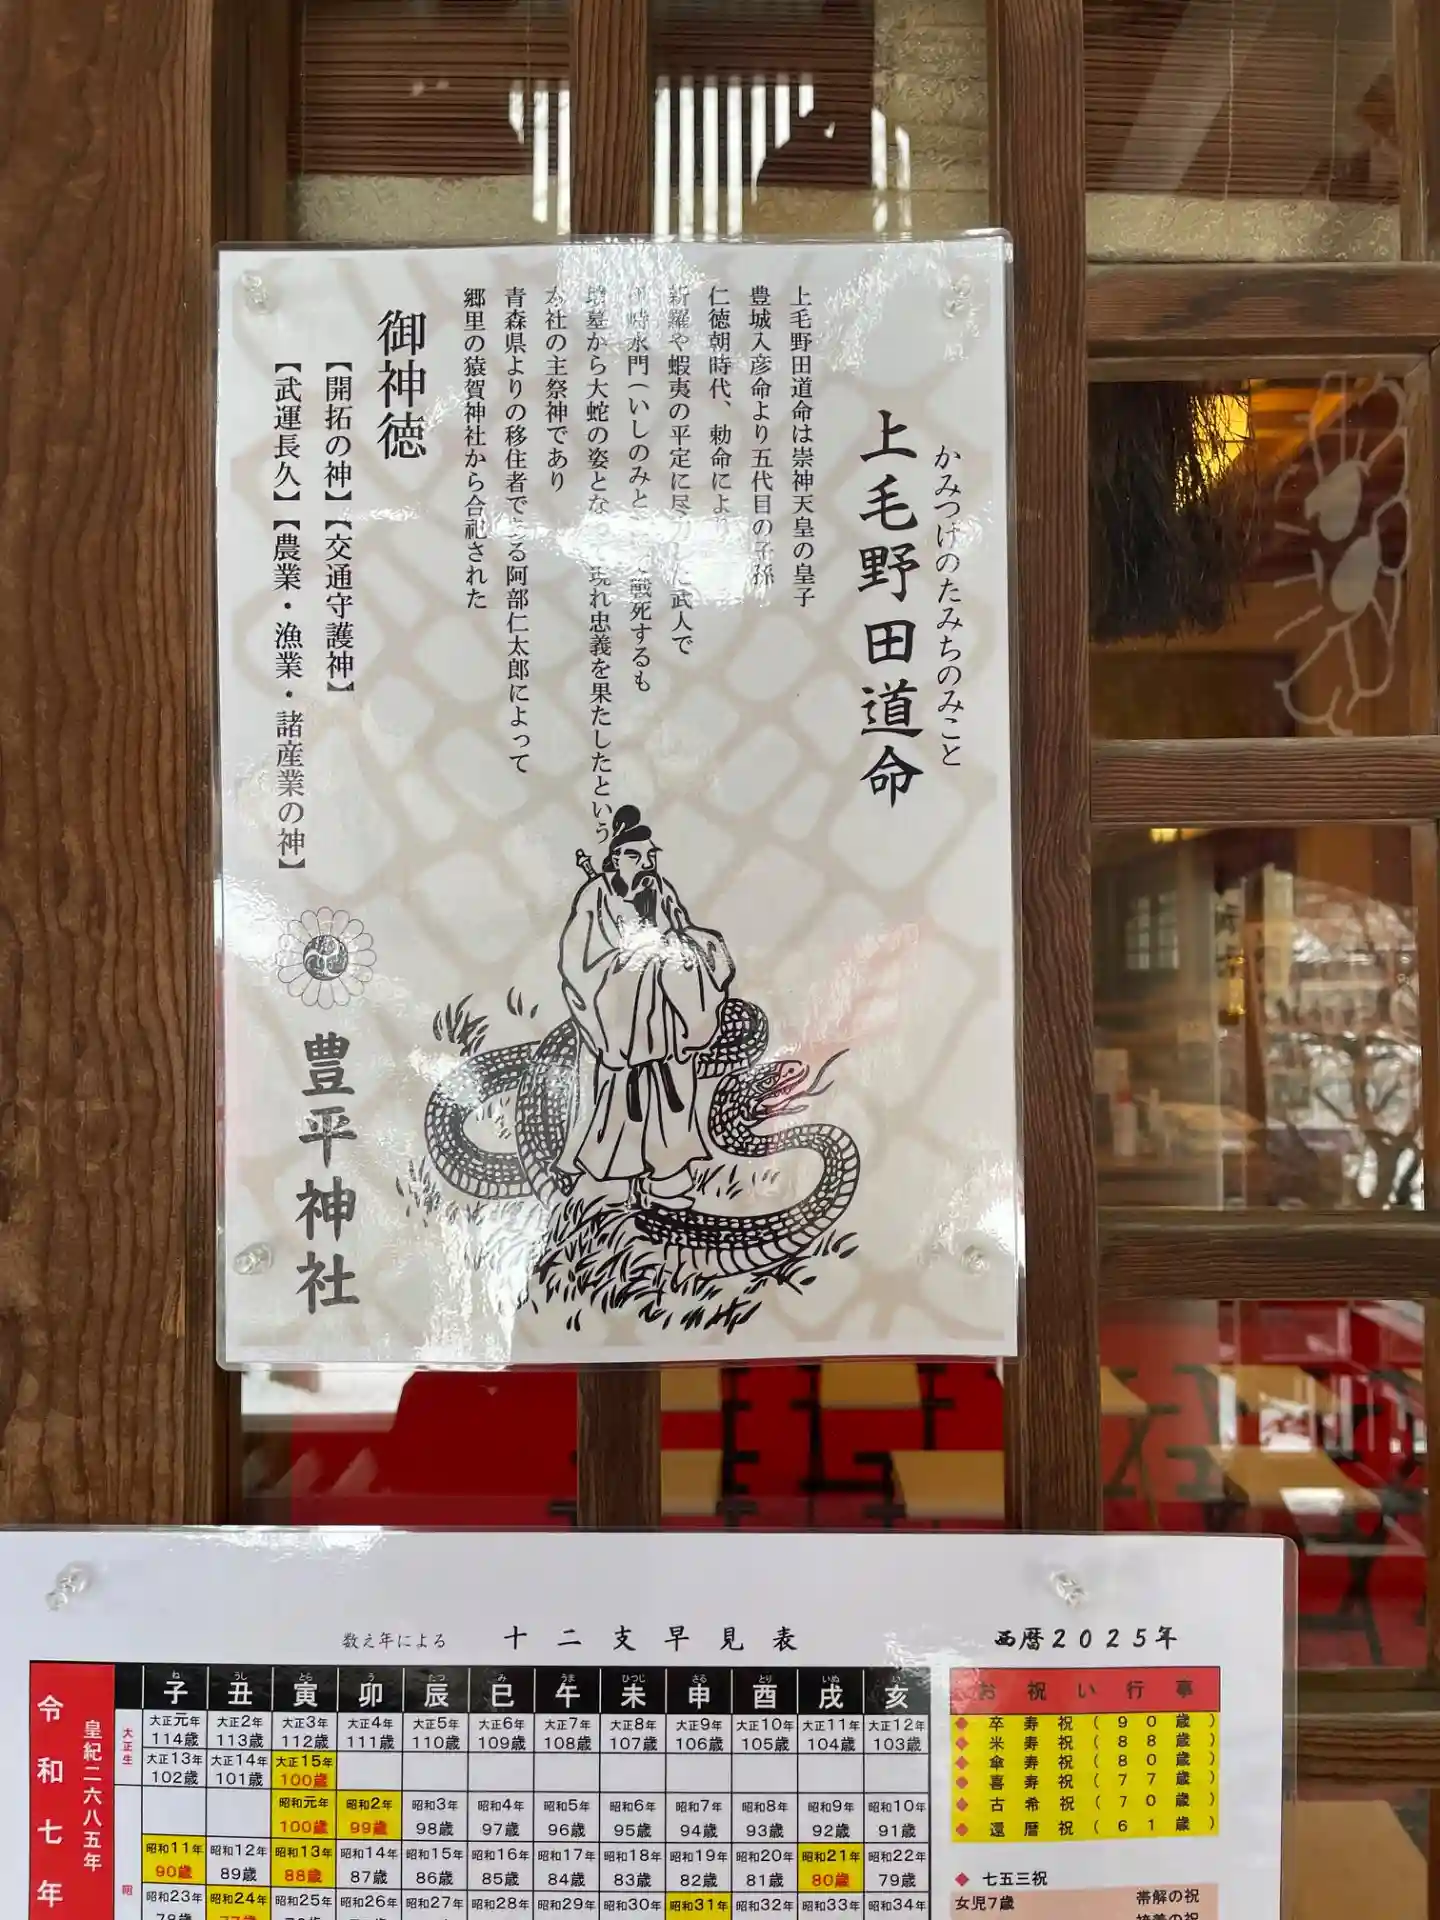 かみつけのたみちのみこと
上毛野田道命
上毛野田道命は崇神天皇の皇子
豊城入彦命より五代目の子孫
仁徳朝時代、勅命により
新羅や蝦夷の平定に尽力した武人で
水門(いしのみと 戦死するも
墳墓から大蛇の姿とな 現れ忠義を果たしたという
本社の主祭神であり
青森県よりの移住者である阿部仁太郎によって
郷里の猿賀神社から合祀された
御神徳
【開拓の神】【交通守護神】
【武運長久】【農業・漁業・諸産業の神】
豊平神社
数え年による 十二支早見表 西暦2025年
令和七年
皇紀二六八五年
ね うし とら う たつ み うま ひつじ さる とり いぬ い
子 丑 寅 卯 辰 巳 午 未 申 酉 戌 亥
大正生
大正元年 大正2年 大正3年 大正4年 大正5年 大正6年 大正7年 大正8年 大正9年 大正10年 大正11年 大正12年
114歳 113歳 112歳 111歳 110歳 109歳 108歳 107歳 106歳 105歳 104歳 103歳
大正13年 大正14年 大正15年
102歳 101歳 100歳
昭和元年 昭和2年 昭和3年 昭和4年 昭和5年 昭和6年 昭和7年 昭和8年 昭和9年 昭和10年
100歳 99歳 98歳 97歳 96歳 95歳 94歳 93歳 92歳 91歳
昭和11年 昭和12年 昭和13年 昭和14年 昭和15年 昭和16年 昭和17年 昭和18年 昭和19年 昭和20年 昭和21年 昭和22年
90歳 89歳 88歳 87歳 86歳 85歳 84歳 83歳 82歳 81歳 80歳 79歳
昭
昭和23年 昭和24年 昭和25年 昭和26年 昭和27年 昭和28年 昭和29年 昭和30年 昭和31年 昭和32年 昭和33年 昭和34年
78歳 77歳
お祝い行事
◆ 卒寿祝(90歳)
◆ 米寿祝(88歳)
◆ 傘寿祝(80歳)
◆ 喜寿祝(77歳)
◆ 古希祝(70歳)
◆ 還暦祝(61歳)
◆ 七五三祝
女児7歳 帯解の祝